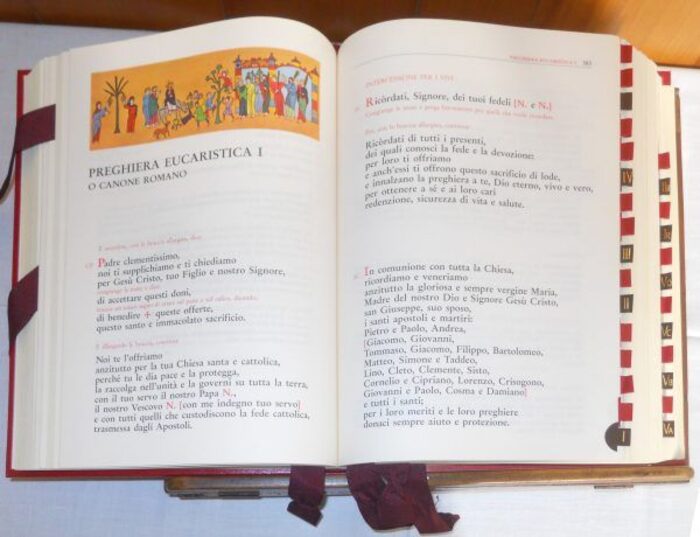 PREGHIERA EUCARISTICA I
O CANONE ROMANO
Padre clementissimo,
noi ti supplichiamo e ti chiediamo
per Gesù Cristo, tuo Figlio e nostro Signore,
di accettare questi doni,
di benedire + queste offerte,
questo santo e immacolato sacrificio.
Noi te l'offriamo
anzitutto per la tua Chiesa santa e cattolica,
perché tu le dia pace e la protegga,
la raccolga nell'unità e la governi su tutta la terra,
con il tuo servo il nostro Papa N.,
il nostro Vescovo N. [con me indegno tuo servo]
e con tutti quelli che custodiscono la fede cattolica,
trasmessa dagli Apostoli.
PREGHIERA EUCARISTICA I 385
INTERCESSIONE PER I VIVI
Ricòrdati, Signore, dei tuoi fedeli [N. e N.]
Ricòrdati di tutti i presenti,
dei quali conosci la fede e la devozione:
per loro ti offriamo
e anch'essi ti offrono questo sacrificio di lode,
e innalzano la preghiera a te, Dio eterno, vivo e vero,
per ottenere a sé e ai loro cari
redenzione, sicurezza di vita e salute.
In comunione con tutta la Chiesa,
ricordiamo e veneriamo
anzitutto la gloriosa e sempre vergine Maria,
Madre del nostro Dio e Signore Gesù Cristo,
san Giuseppe, suo sposo,
i santi apostoli e martiri:
Pietro e Paolo, Andrea,
[Giacomo, Giovanni,
Tommaso, Giacomo, Filippo, Bartolomeo,
Matteo, Simone e Taddeo,
Lino, Cleto, Clemente, Sisto,
Cornelio e Cipriano, Lorenzo, Crisogono,
Giovanni e Paolo, Cosma e Damiano]
e tutti i santi;
per i loro meriti e le loro preghiere
donaci sempre aiuto e protezione.
IV
III
II
I
VC
VB
VA